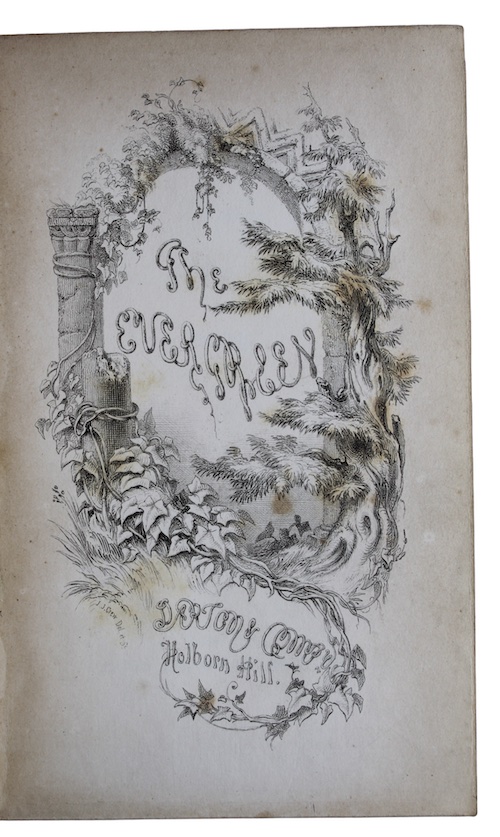 The
EVERGREEN
DARTON & COMPY.
Holborn Hill.